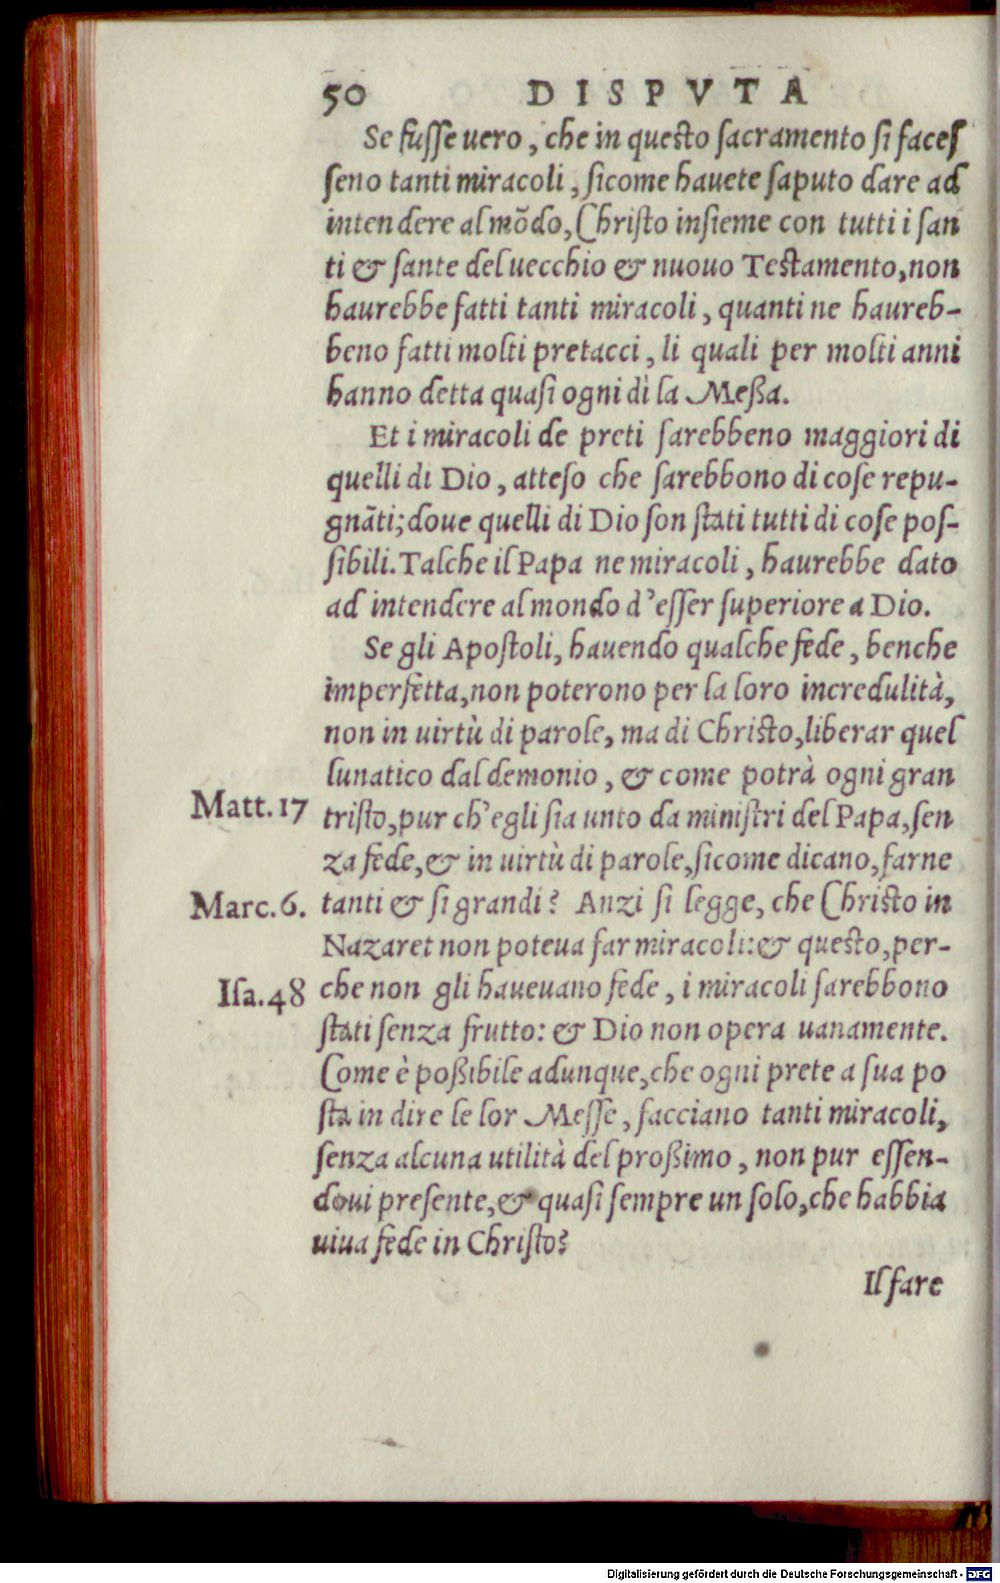 50 DISPVTA
Se fuſſe uero, che in queſto ſacramento ſi faceſ
ſeno tanti miracoli, ſicome hauete ſaputo dare ad
intendere al mõdo, Chriſto inſieme con tutti i ſan
ti & ſante del uecchio & nuouo Teſtamento, non
haurebbe fatti tanti miracoli, quanti ne haureb-
beno fatti molti pretacci, li quali per molti anni
hanno detta quaſi ogni dì la Meßa.
Et i miracoli de preti ſarebbeno maggiori di
quelli di Dio, atteſo che ſarebbono di coſe repu-
gnãti; doue quelli di Dio ſon ſtati tutti di coſe poſ-
ſibili. Talche il Papa ne miracoli, haurebbe dato
ad intendere al mondo d'eſſer ſuperiore a Dio.
Se gli Apoſtoli, hauendo qualche fede, benche
imperfetta, non poterono per la loro incredulità,
non in uirtù di parole, ma di Chriſto, liberar quel
lunatico dal demonio, & come potrà ogni gran
Matt. 17 triſto, pur ch'egli ſia unto da miniſtri del Papa, ſen
za fede, & in uirtù di parole, ſicome dicano, farne
Marc. 6. tanti & ſi grandi? Anzi ſi legge, che Chriſto in
Nazaret non poteua far miracoli: & queſto, per-
Iſa. 48 che non gli haueuano fede, i miracoli ſarebbono
ſtati ſenza frutto: & Dio non opera uanamente.
Come è poßibile adunque, che ogni prete a ſua po
ſta in dire le lor Meſſe, facciano tanti miracoli,
ſenza alcuna utilità del proßimo, non pur eſſen-
doui preſente, & quaſi ſempre un ſolo, che habbia
uiua fede in Chriſto?
Il fare
Digitalisierung gefördert durch die Deutsche Forschungsgemeinschaft - DFG